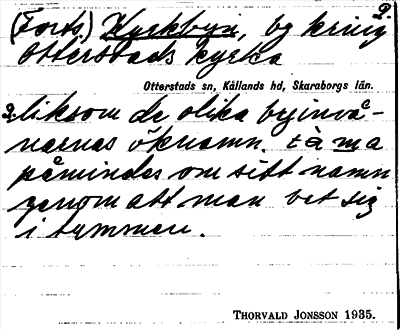 2.
(Forts.) Kyrkbyn, by kring
Otterstads kyrka
Otterstads sn, Kållands hd, Skaraborgs län.
2. liksom de olika byinvå-
narnas öknamn. tà ma
påmindes om sitt namn
genom att man bet sig
i tummen.
THORVALD JONSSON 1935.